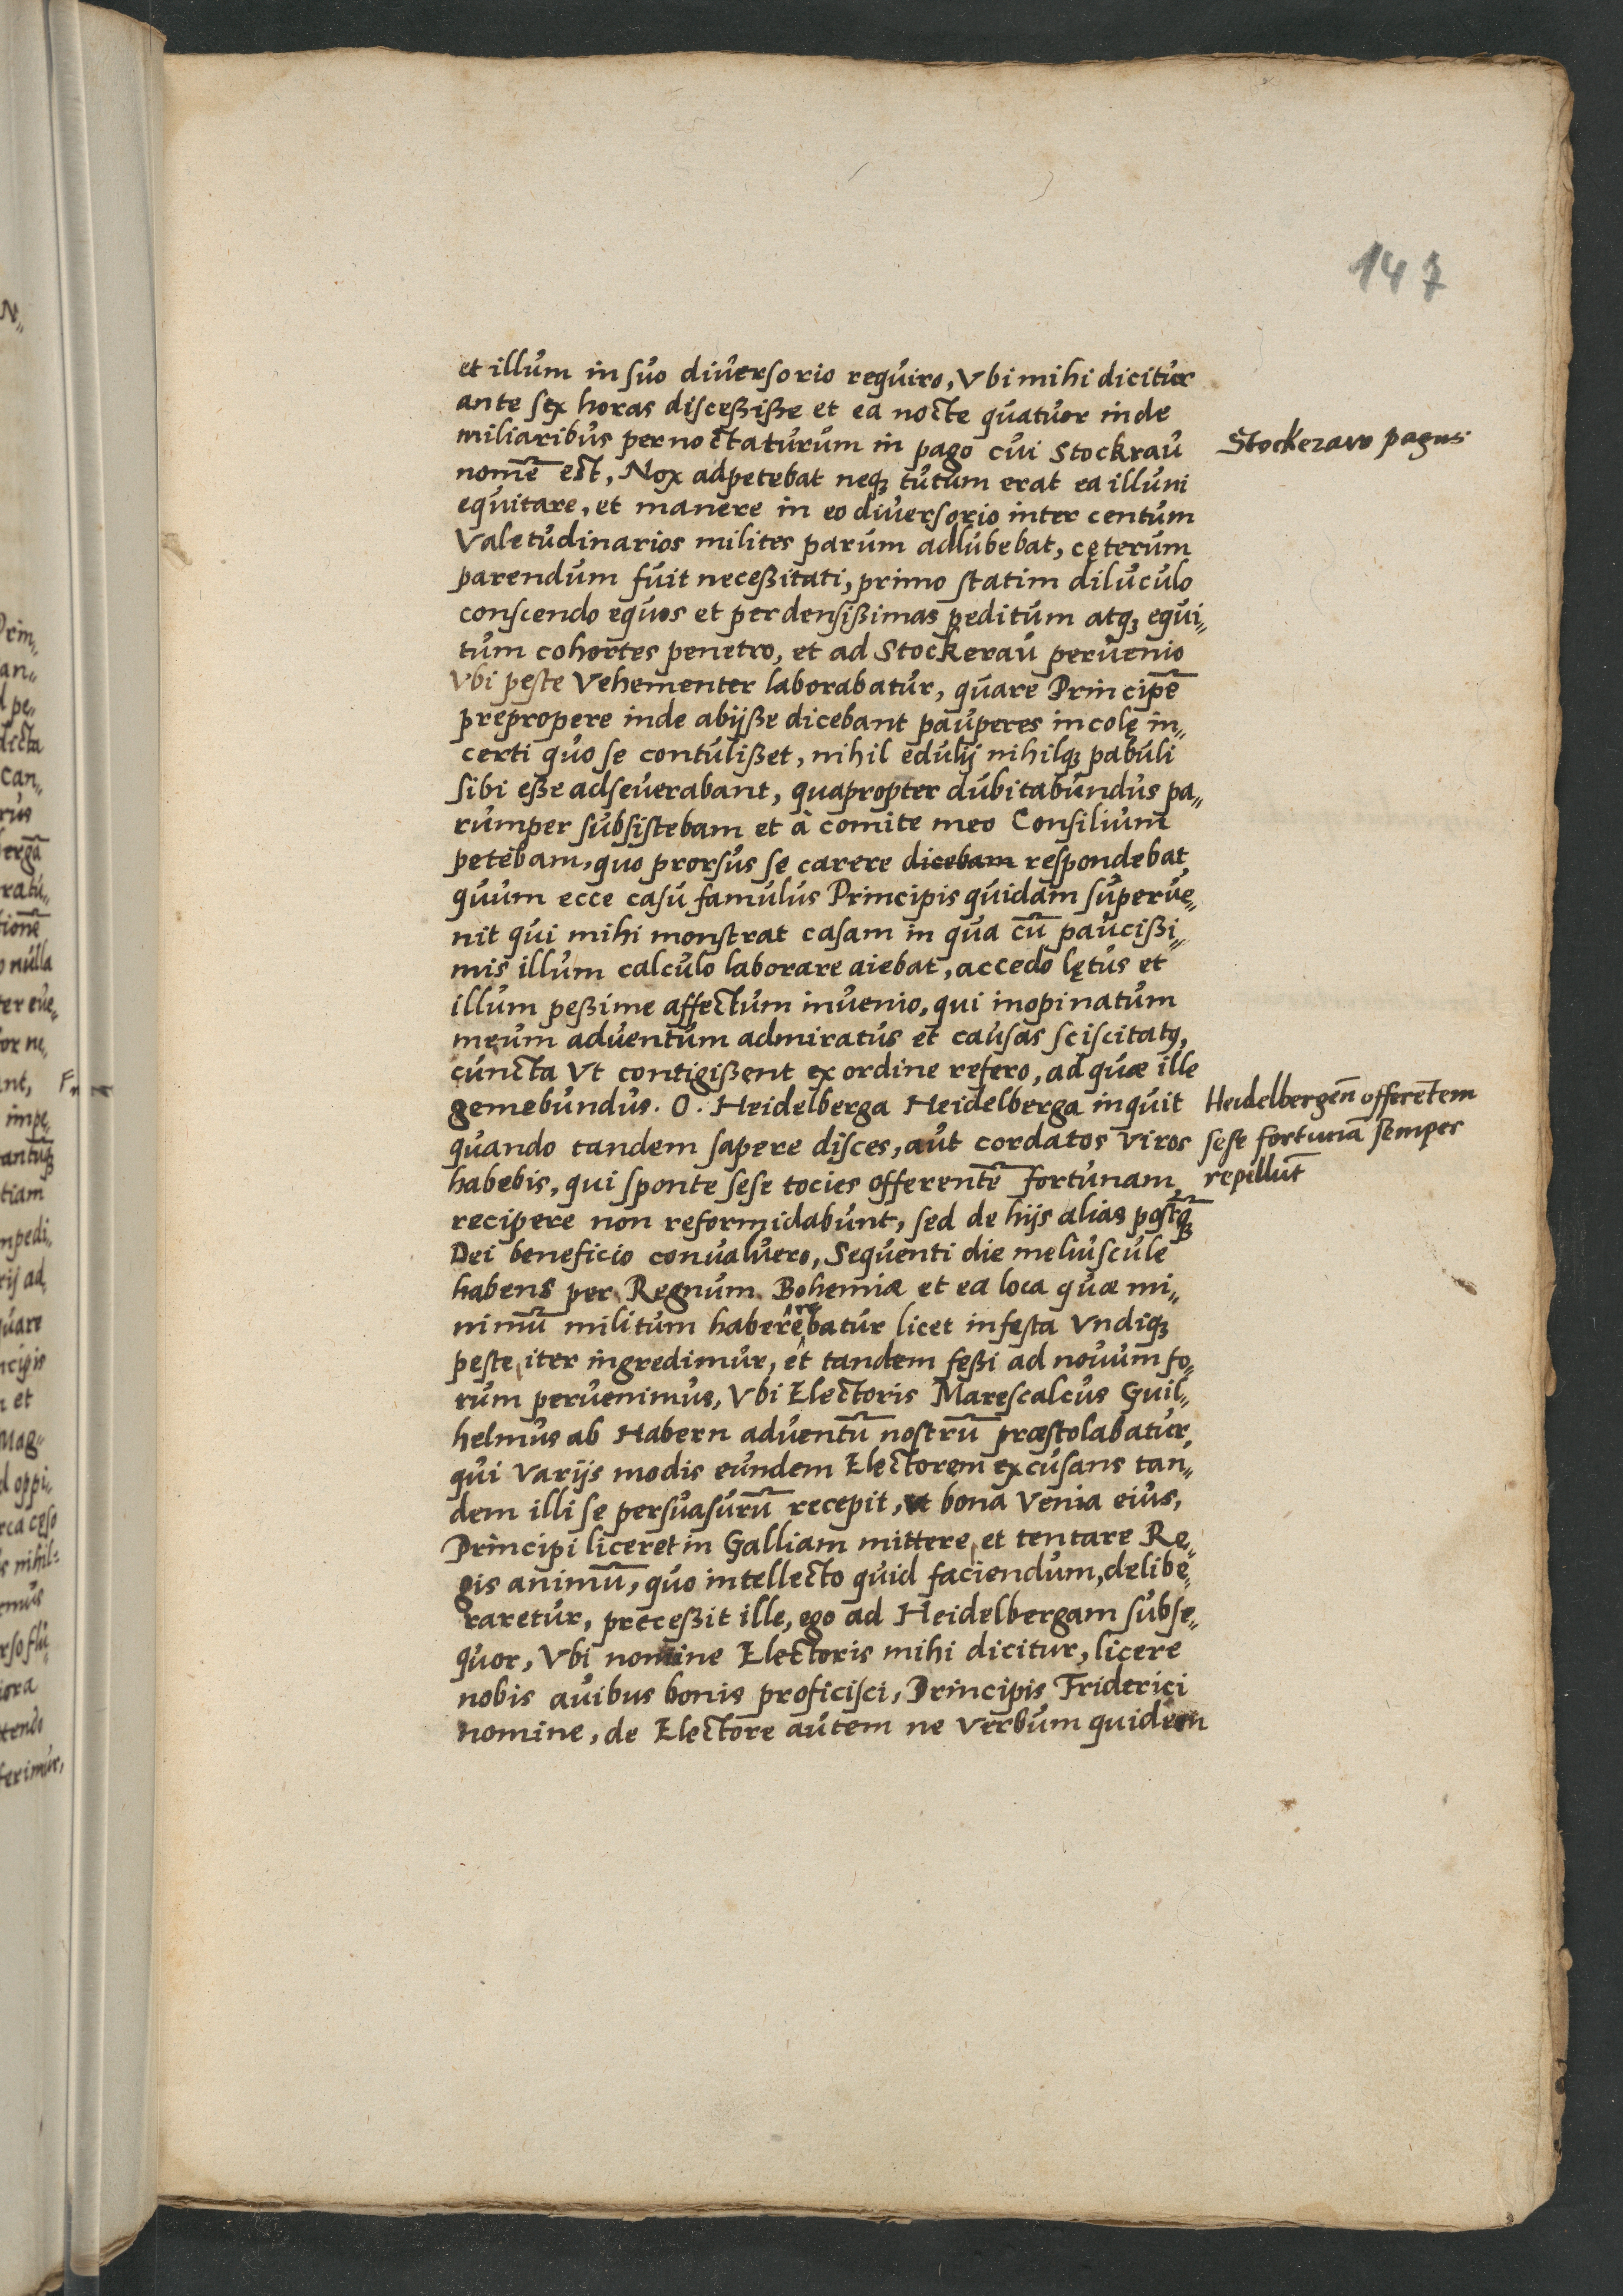 147
et illum in suo diuersorio requiro, Vbi mihi dicitur
ante sex horas discessisse et ea nocte quatuor inde
miliaribus pernoctaturum in pago cui Stockrau
Stockeraw pagus
nomē est, Nox adpetebat neq; tutum erat ea illuni
equitare, et manere in eo diuersorio inter centum
Valetudinarios milites parum adlubebat, cęterum
parendum fuit necessitati, primo statim diluculo
conscendo equos et per densissimas peditum atq; equi„
tum cohortes penetro, et ad Stockerau peruenio
Vbi peste Vehementer laborabatur, quare Principē
prepropere inde abijsse dicebant pauperes incolę in„
certi quo se contulisset, nihil edulij nihilq; pabuli
sibi esse adseuerabant, quapropter dubitabundus pa„
rumper subsistebam et à comite meo Consilium
petebam, quo prorsus se carere dicebam respondebat,
quum ecce casu famulus Principis quidam superue„
nit qui mihi monstrat casam in qua cū paucissi„
mis illum calculo laborare aiebat, accedo lętus et
illum pessime affectum inuenio, qui inopinatum
meum aduentum admiratus et causas sciscitatꝰ,
cuncta Vt contigissent ex ordine refero, ad quæ ille
gemebundus. O. Heidelberga Heidelberga inquit
Heidelbergeñ offerētem
quando tandem sapere disces, aut cordatos viros
sese fortunā semper
habebis, qui sponte sese tocies offerentē fortunam
repellūt
recipere non reformidabunt, sed de hijs alias postq̄;
Dei beneficio conualuero, Sequenti die meliuscule
habens per Regnum Bohemiæ et ea loca quæ mi„
nimū militum haberērebatur licet infesta Vndiq;
peste, iter ingredimur, et tandem fessi ad nouum fo„
rum peruenimus, Vbi Electoris Marescalcus Guil„
helmus ab Habern aduentū nostrū præstolabatur,
qui Varijs modis eundem Electorem excusans tan„
dem illi se persuasurū recepit, Vt bona Venia eius,
Principi liceret in Galliam mittere, et tentare Re„
gis animū, quo intellecto quid faciendum, delibe„
raretur, precessit ille, ego ad Heidelbergam subse„
quor, Vbi nomine Electoris mihi dicitur, licere
nobis auibus bonis proficisci, Principis Friderici
nomine, de Electore autem ne Verbum quidem